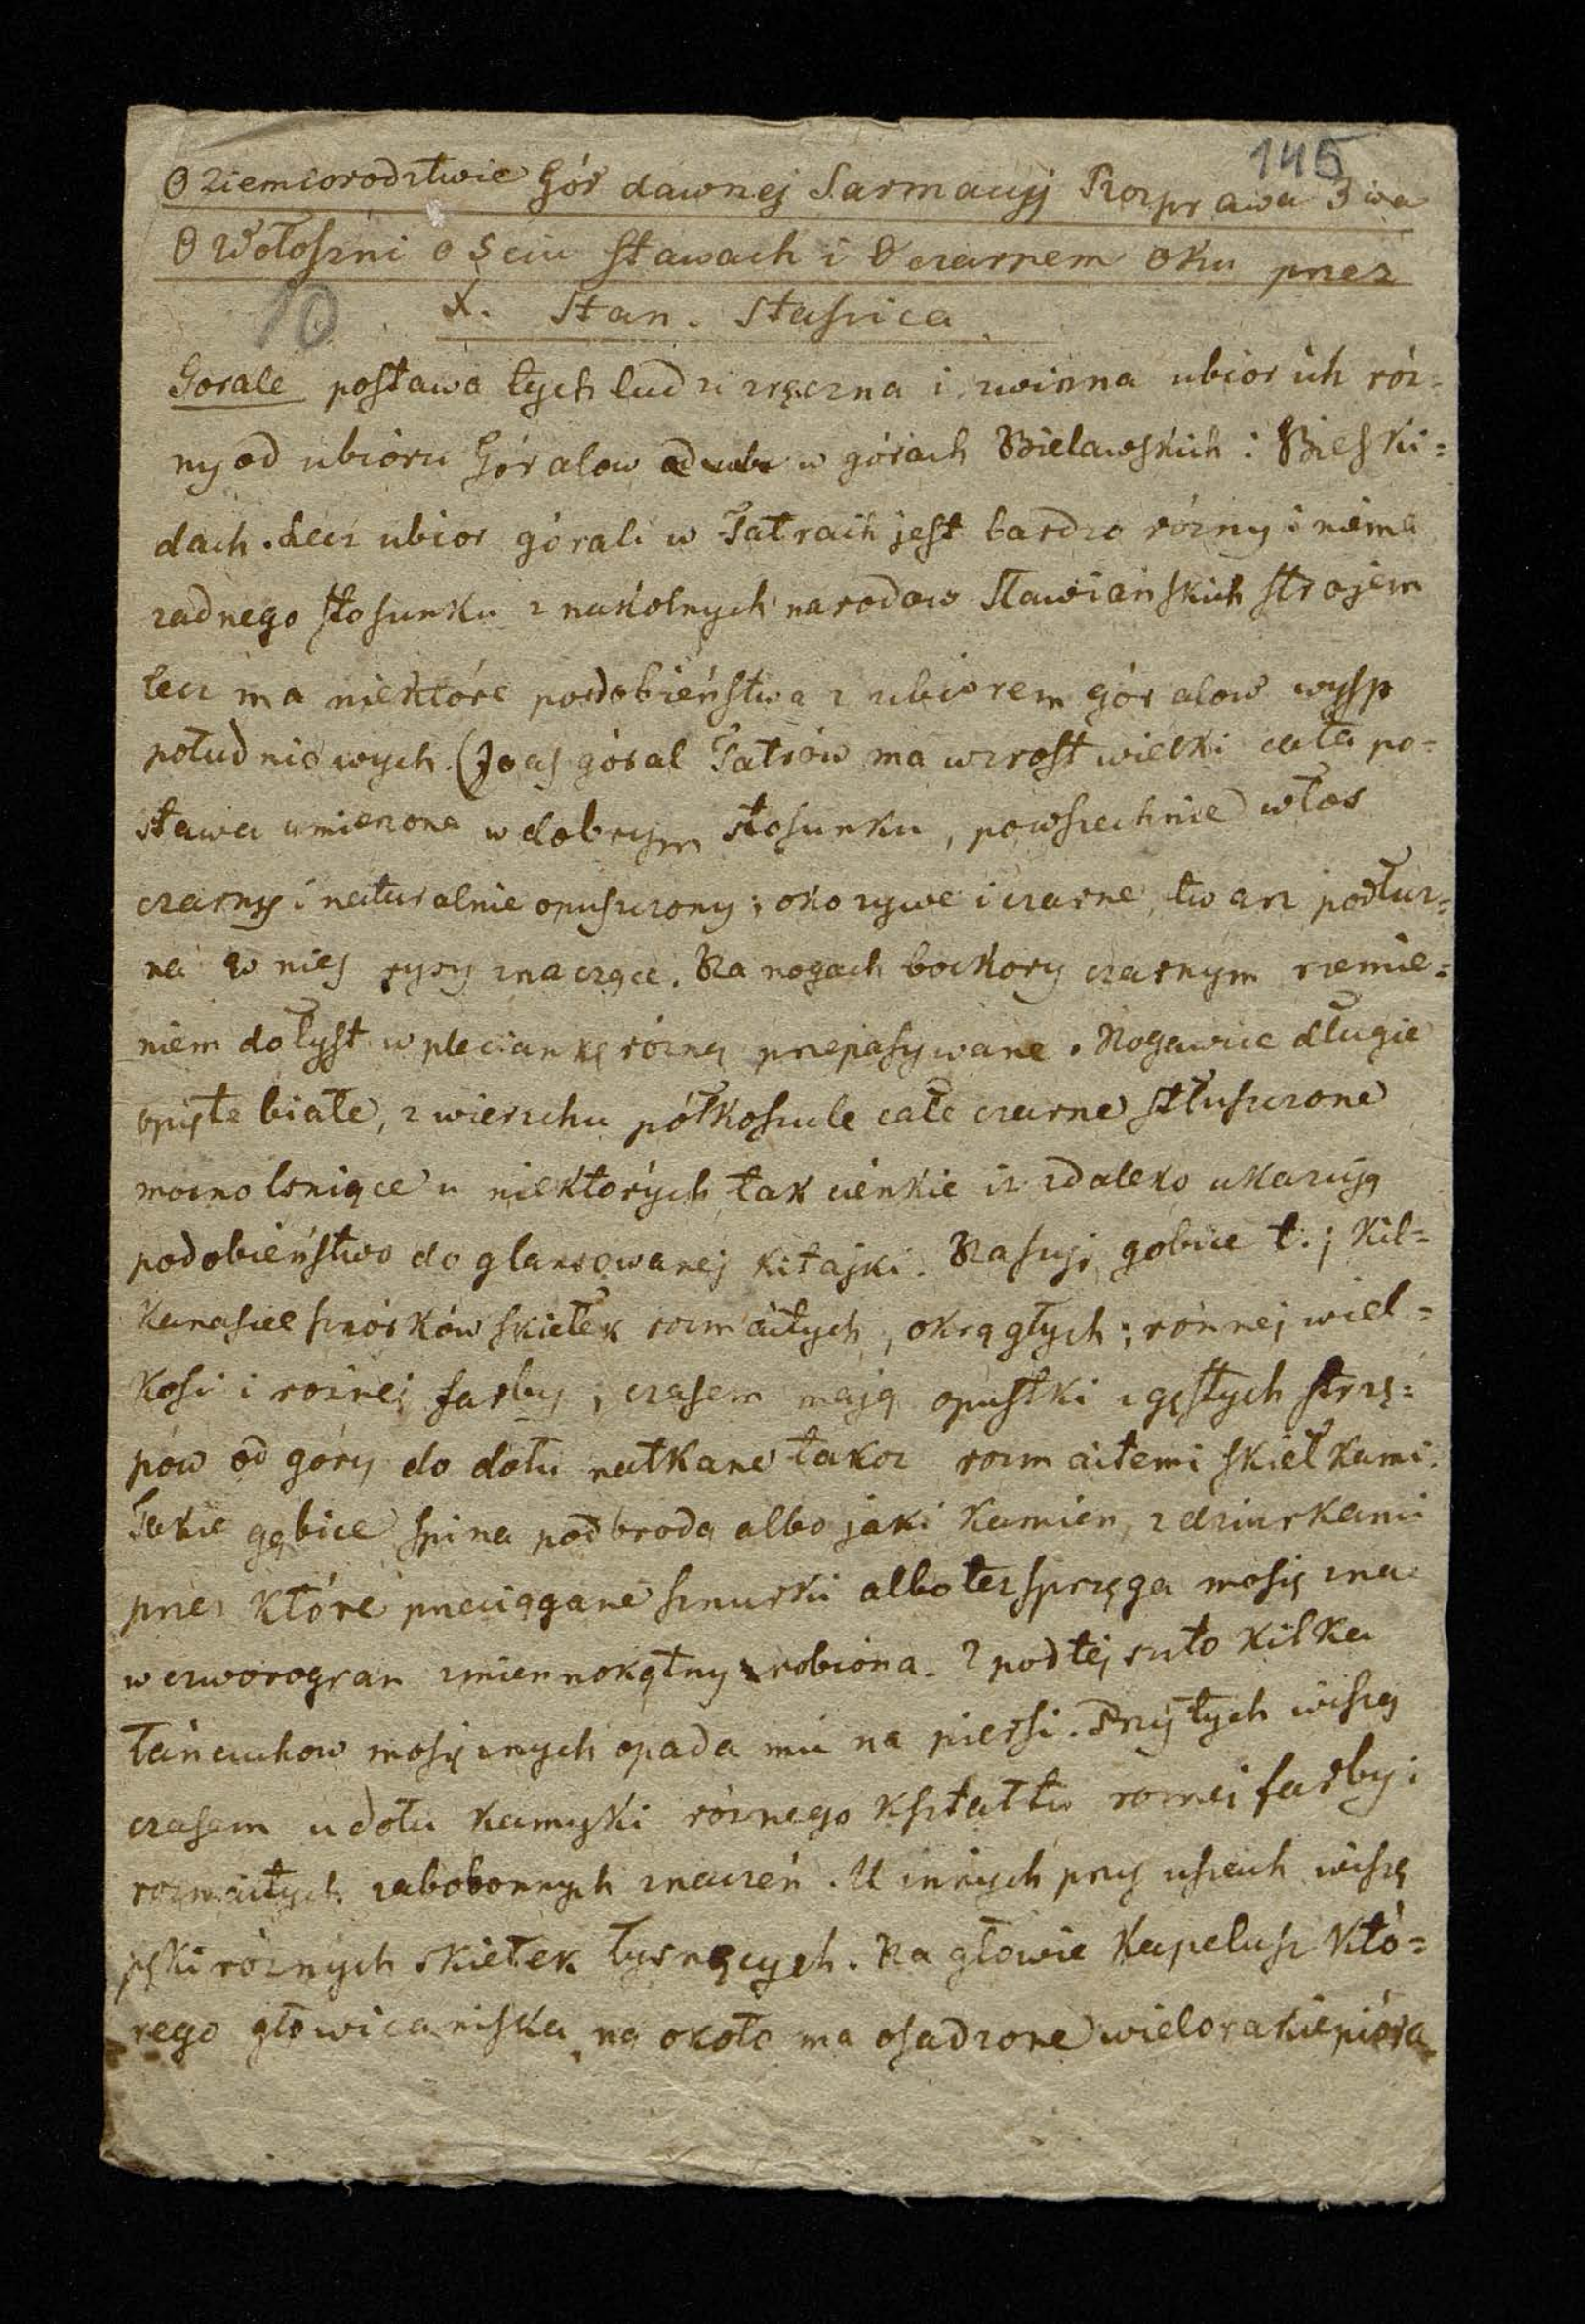 145
O Ziemiorodztwie Gór dawnej Sarmacyj Rozprawa 3wa
O Wołoszni o 5ciu stawach i O czarnem Oku przez
10 X. Stan. Staszica
Gorale postawa tych ludzi zręczna i zwinna ubior ich róz=
ny od ubioru Góralow w górach Bielawskich i Bieski=
dach. Lecz ubior górali w Tatrach jest bardzo rózny i niema
zadnego stosunku z nakolnych narodow Sławiańskich strojem
lecz ma niektóre podobieństwa z ubiorem góralow wysp
południowych. (Joas góral Tatrów ma wzrost wielki cała po=
stawa umierzona w dobrym stosunku, powszechnie włos
czarny i naturalnie opuszczony; oko zywe i czarne, twarz podłuz=
na w niej rysy znaczące. Na nogach bockory czarnym rzemie=
niem do łyst w pleciankę rózną przepasywane. Nogawice długie
opięte białe, z wierzchu półkoszule całe czarne stłuszczone
mocno lsniące u niektórych tak cienkie iz zdaleko ukazują
podobieństwo do glansowanej kitajki. Na szyj, gobice t.j kil=
kanascie sznórków skiełek rozmaitych, okrągłych; rónnej wiel=
kosi i roznej farby, czasem mają opustki z gęstych strzę=
pów od góry do dołu natkane takoz rozmaitemi skiełkami.
Takie gębice spina pod brodą albo jaki kamien, z dziurkami
przez które przeciągane sznurki albo tez sprzęga mosięzna
w czworogran zmiennokątny robiona. Z pod tej suto kilka
łańcuchow mosięznych opada mu na piersi. Przy tych wiszą
czasem u dołu kamyki róznego kształtu roznej farby i
rozmaitych zabobonnych znaczeń. U innych przy uszach wiszą
pęki róznych skiełek łysnących. Na głowie Kapelusz któ=
rego głowica niska na około ma osadzone wielorakie pióra